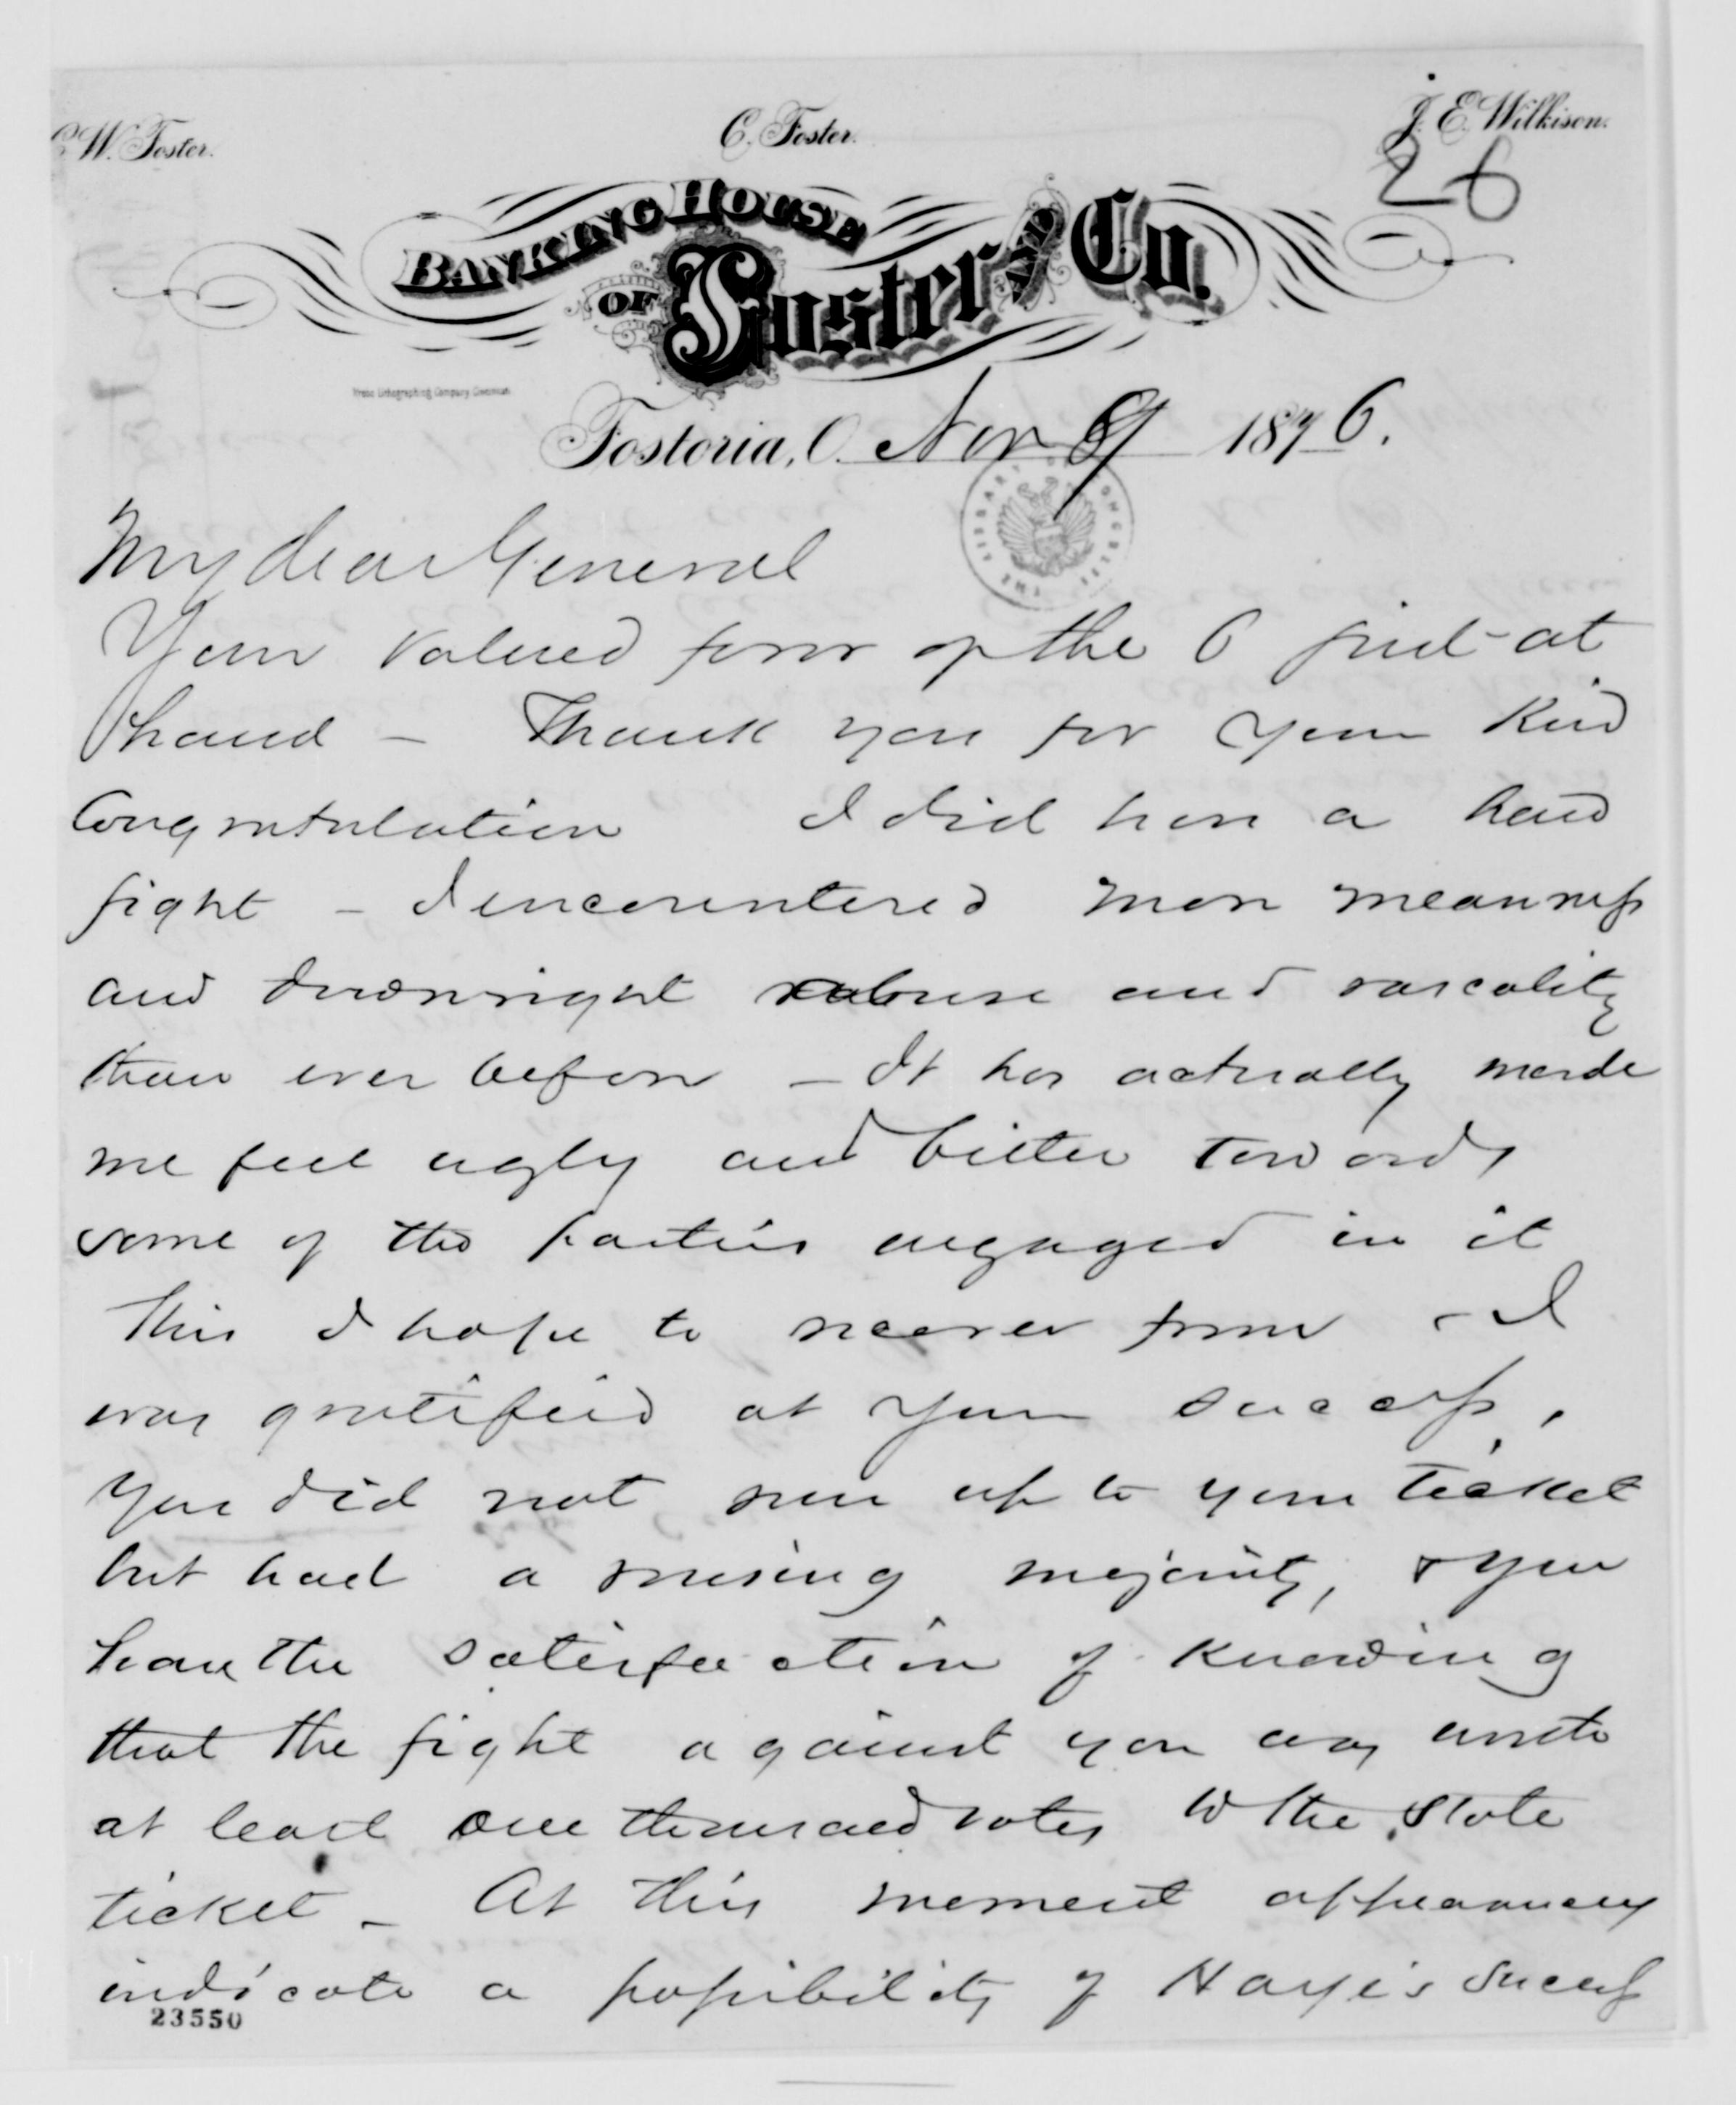 C. W. Foster.
C. Foster.
J. E. Wilkison.
26
BANKING HOUSE
OF Foster AND Co.
Fostoria, O. Nov 9 1876.
THE LIBRARY OF CONGRESS
My dear General
Your valued favor of the 6 just at
hand — Thank you for your kind
Congratulation I did have a hard
fight — I encountered more meanness
and downright abuse and rascality
than ever before — It has actually made
me feel ugly and bitter towards
some of the parties engaged in it
This I hope to recover from — I
was gratified at your success,
You did not run up to your ticket
but had a rousing majority, & you
have the satisfaction of knowing
that the fight against you was
at least one thousand votes to the State
ticket — At this moment appearances
indicate a possibility of Hayes's success
23550